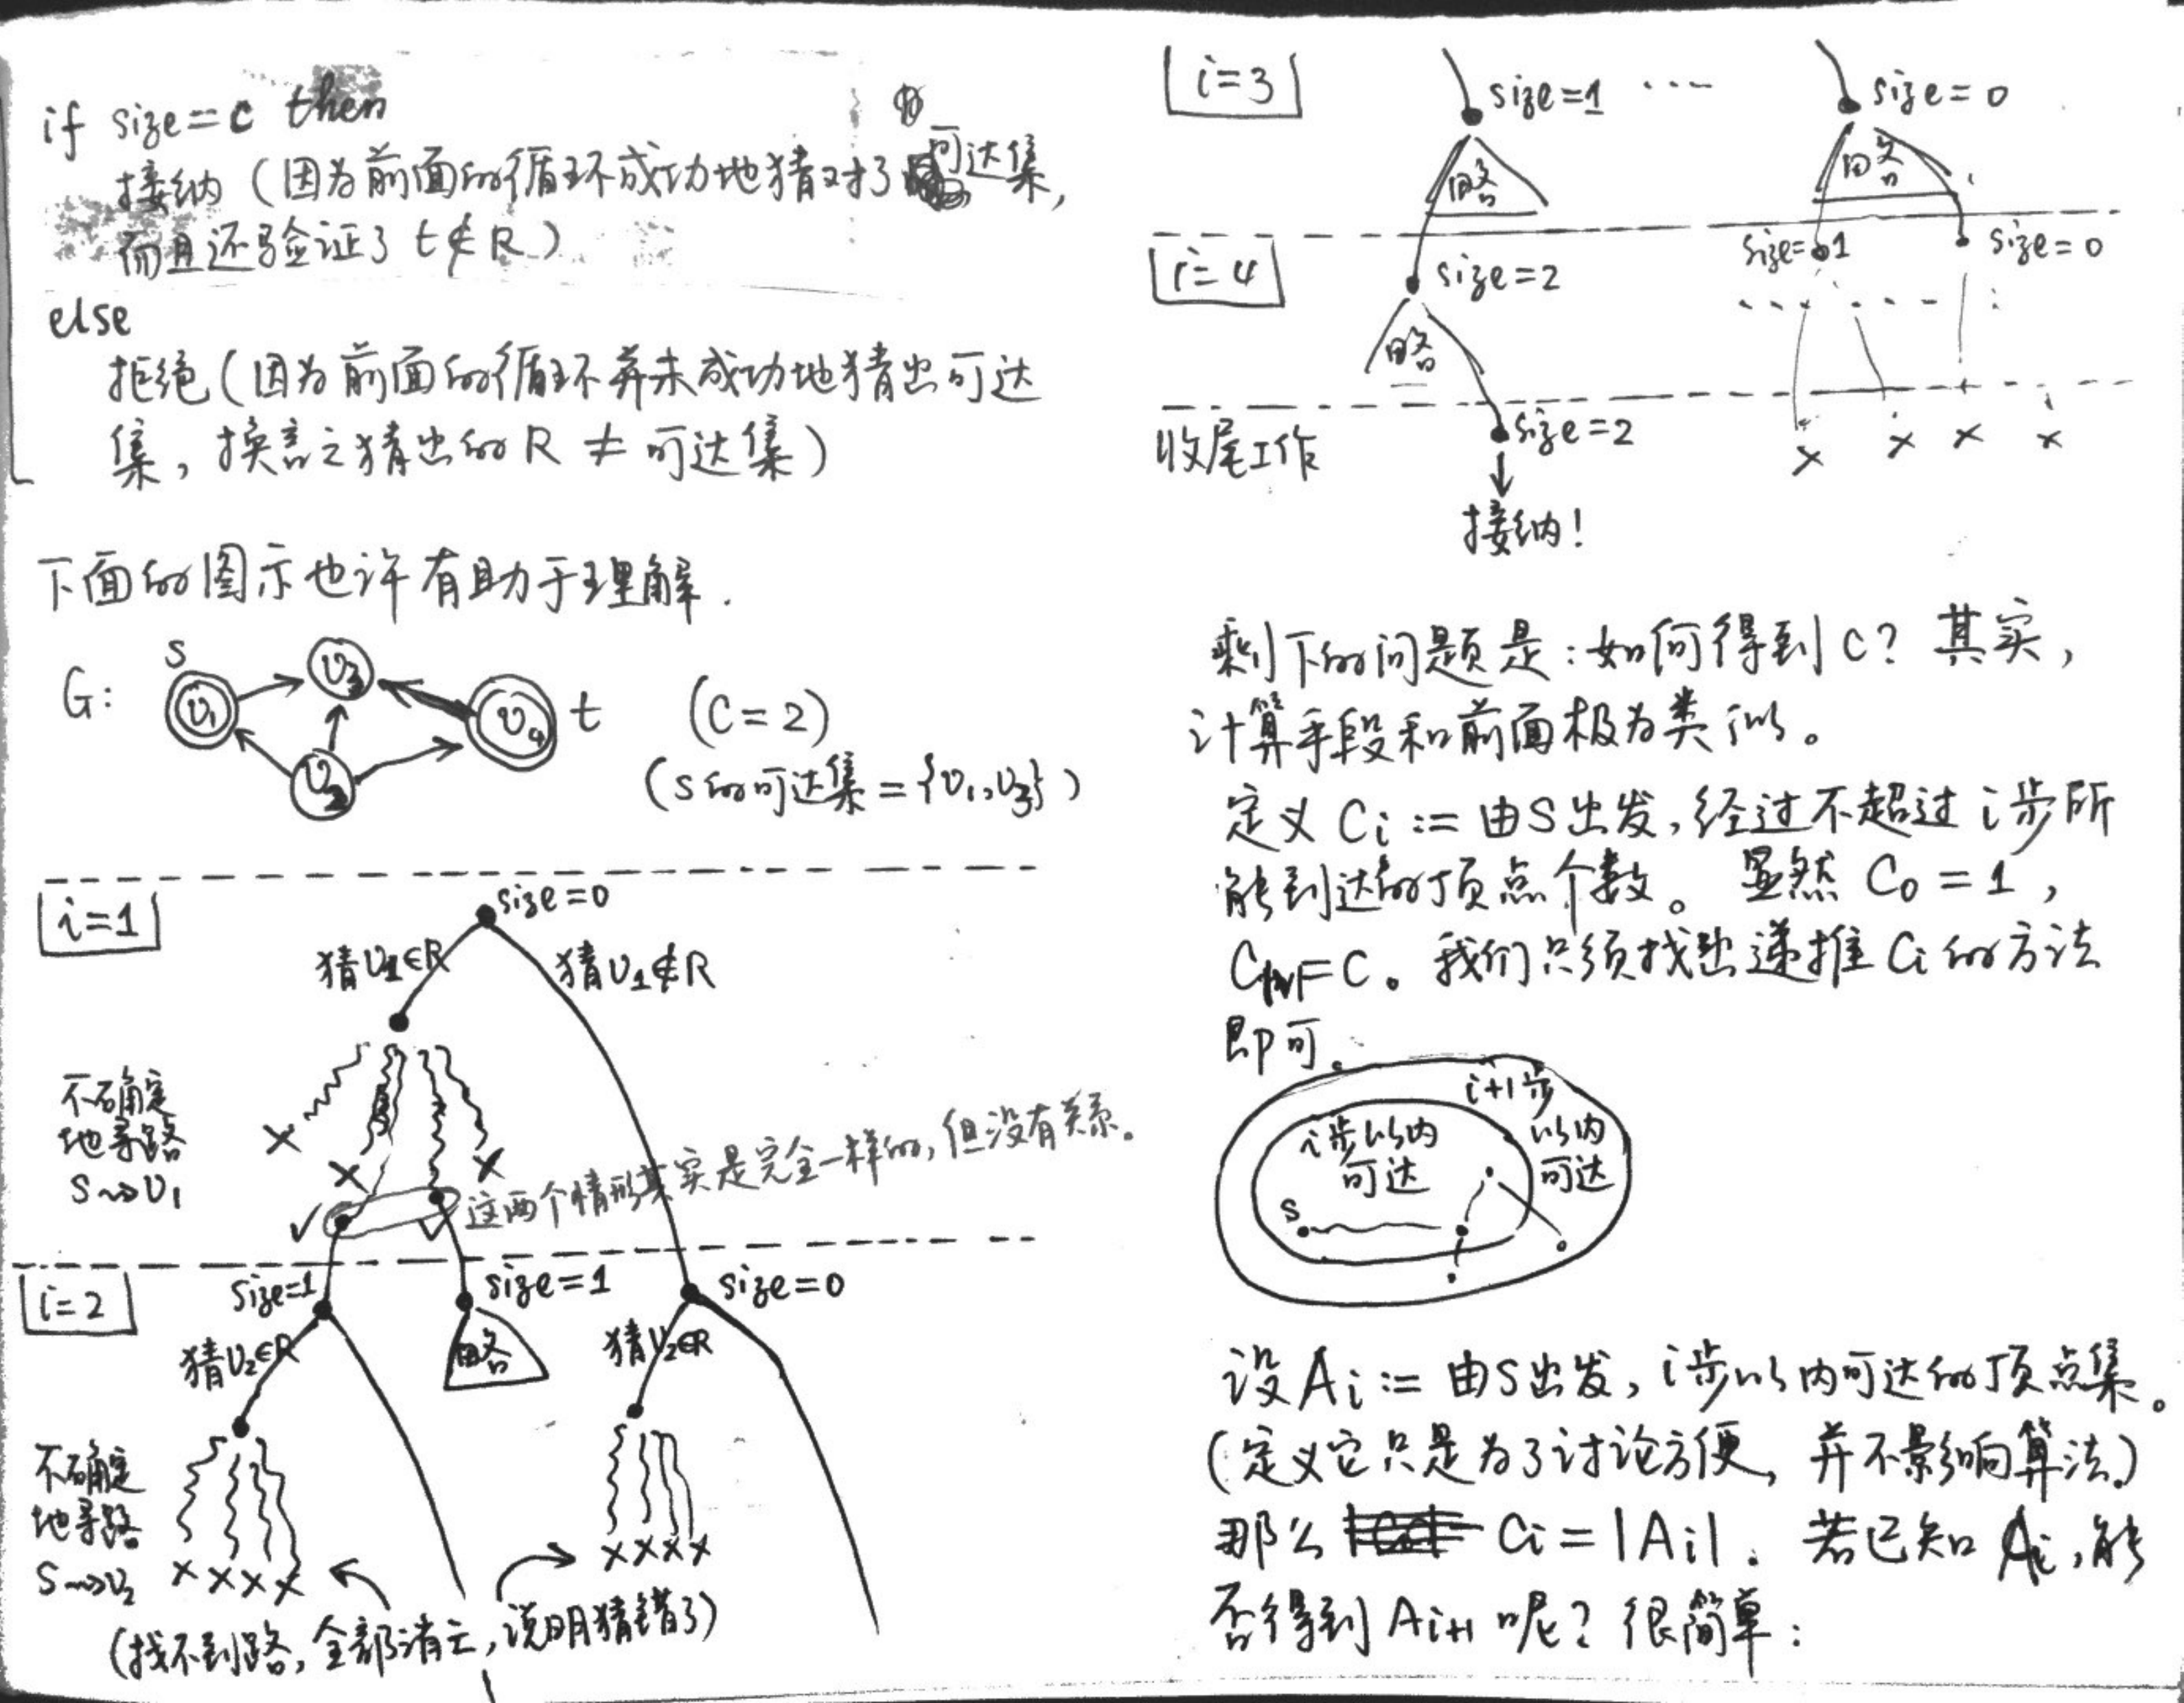 if size=c then
接纳（因为前面的循环成功地猜对了可达集,
而且还验证了 t∉R）
else
拒绝（因为前面的循环并未成功地猜出可达
集，换言之猜出的 R ≠ 可达集）
下面的图示也许有助于理解.
G:
s
v₁
v₃
v₂
v₄
t
(C=2)
(s的可达集={v₁,v₃})
i=1
size=0
猜v₁∈R
猜v₁∉R
不确定
地寻路
s⇝v₁
这两个情形其实是完全一样的，但没有关系。
i=2
size=1
size=1
size=0
猜v₂∈R
略
猜v₂∈R
不确定
地寻路
s⇝v₂
××××
××××
(找不到路，全部消亡，说明猜错了)
i=3
size=1 ····
size=0
略
略
i=4
size=2
size=1
size=0
略
收尾工作
size=2
× × × ×
接纳!
剩下的问题是：如何得到C？其实，
计算手段和前面极为类似。
定义 Ci := 由S出发，经过不超过i步所
能到达的顶点个数。显然 C₀=1，
=C。我们只须找出递推Ci的方法
即可。
i+1步
以内
可达
i步以内
可达
s
设Ai := 由S出发，i步以内可达的顶点集。
(定义它只是为了讨论方便，并不影响算法)
那么 Ci=|Ai|. 若已知Ai,能
否得到Ai+1呢？很简单：